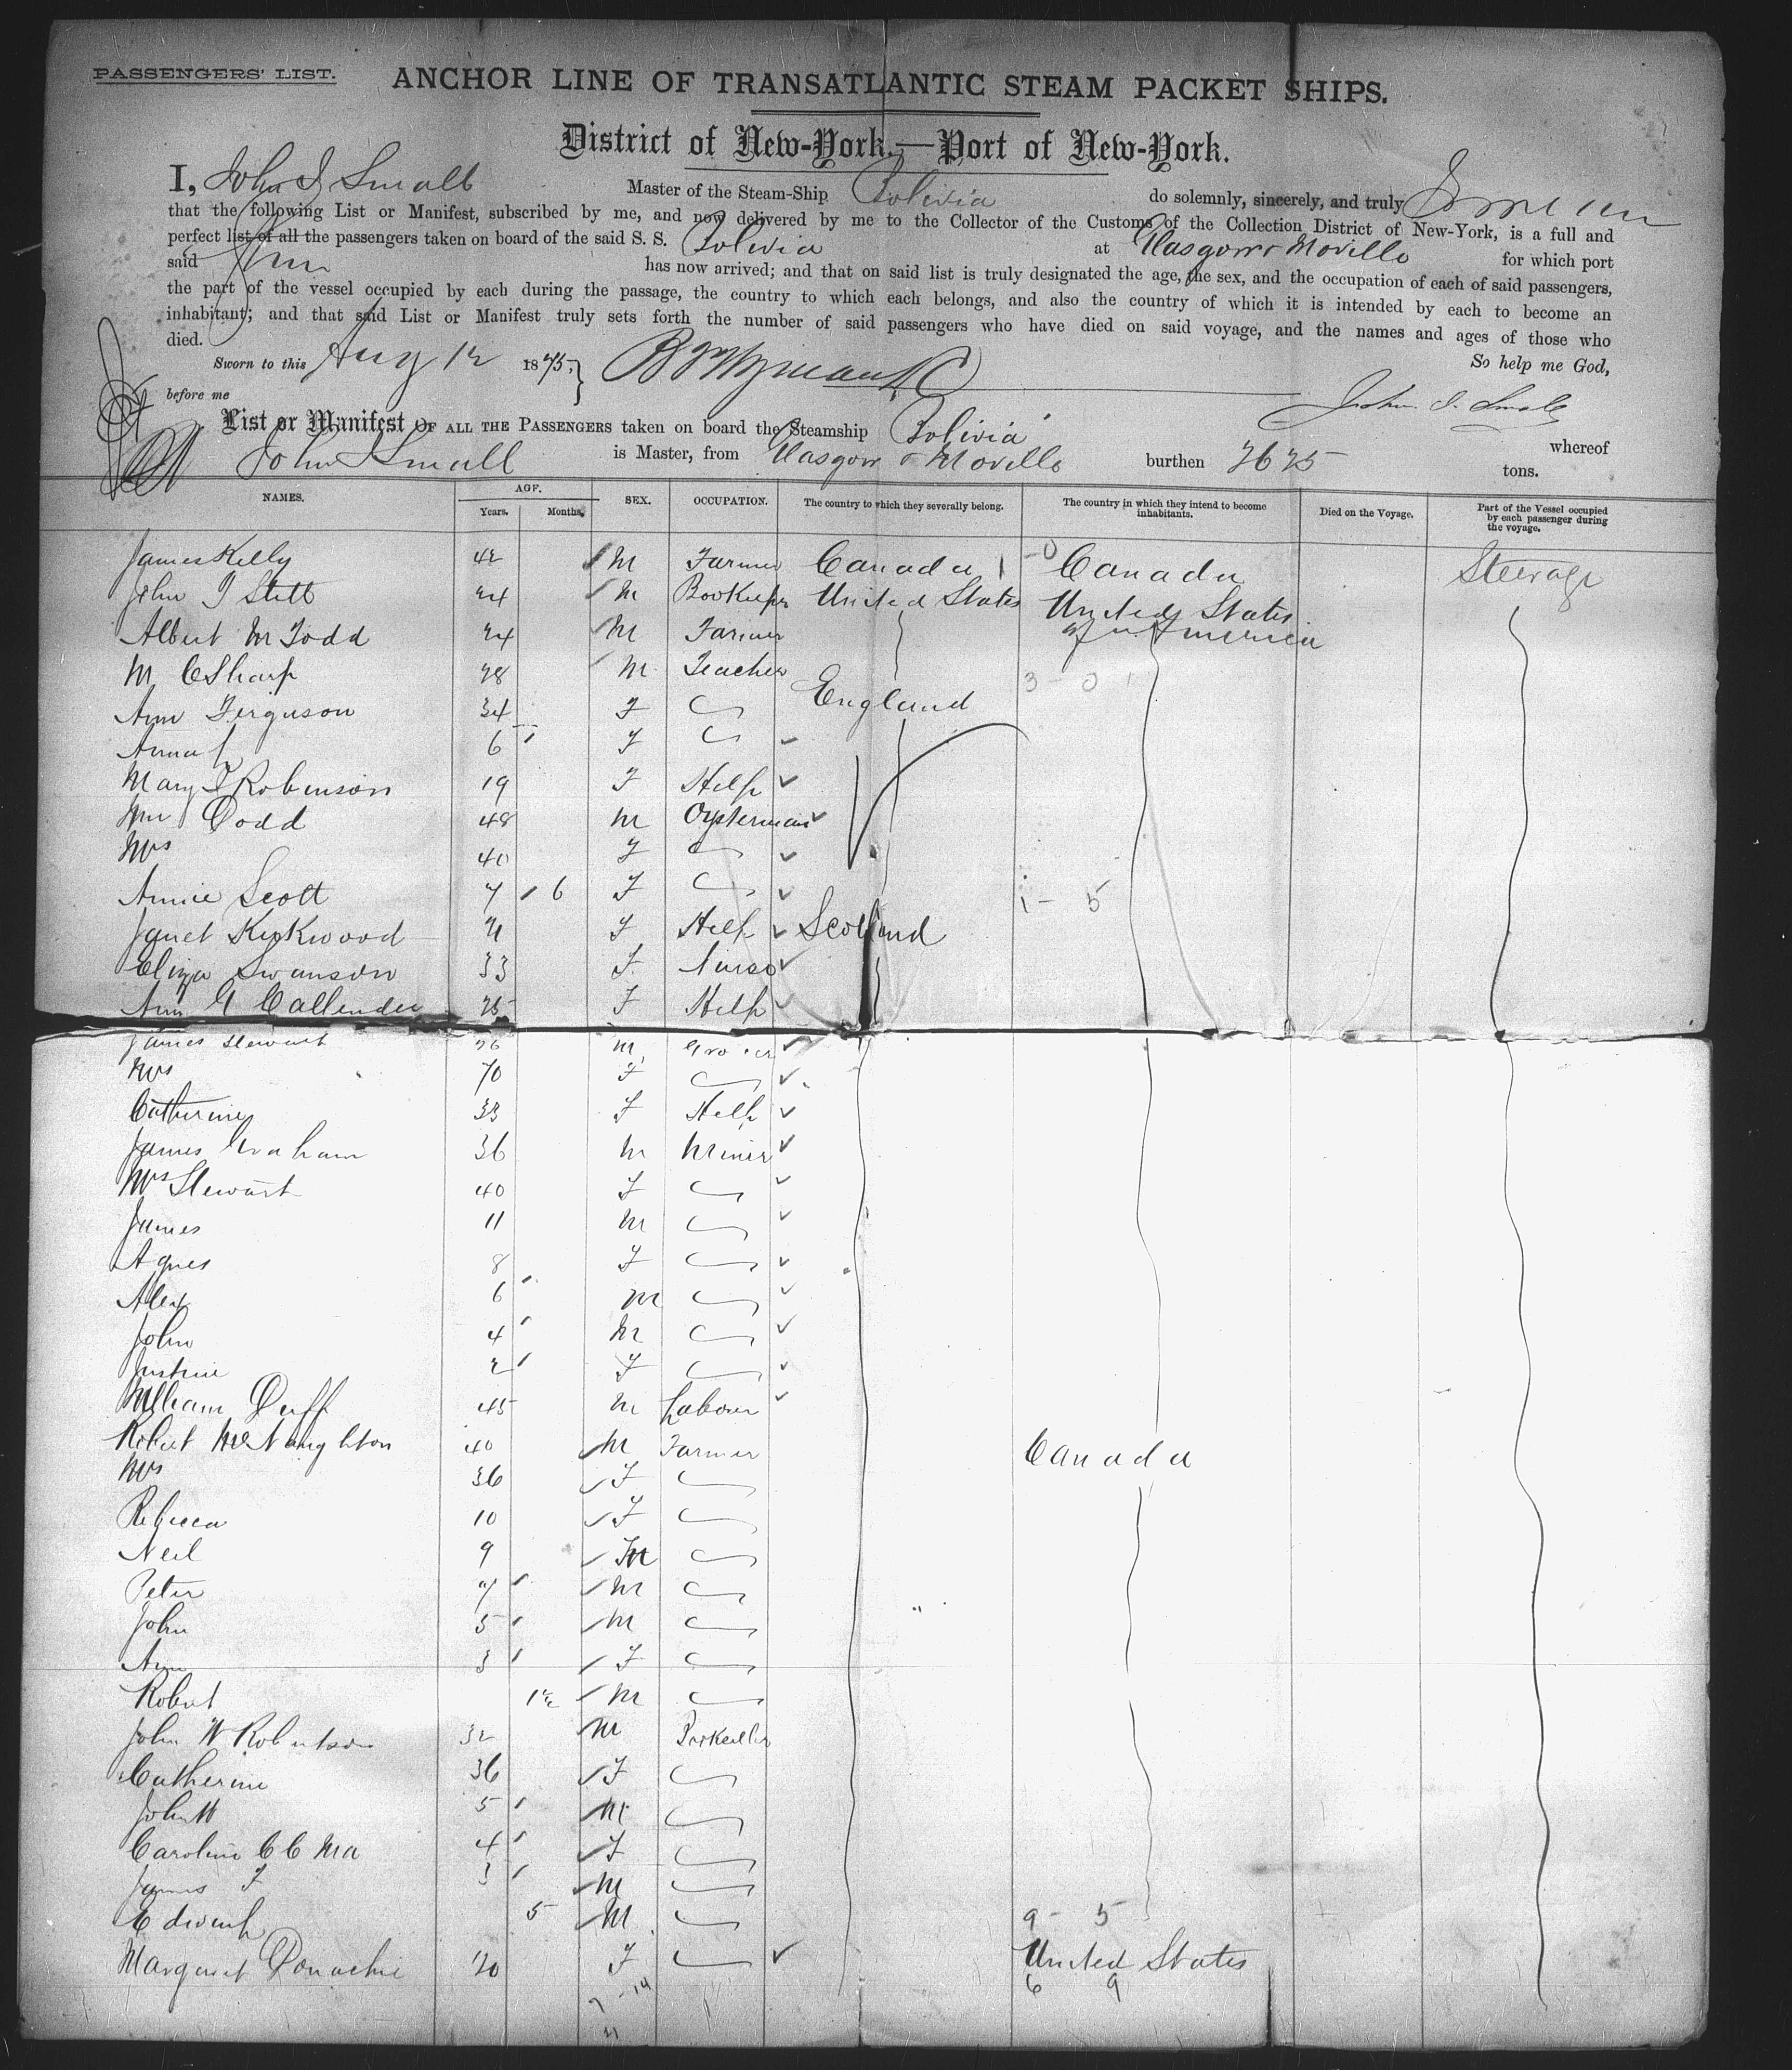 PASSENGERS' LIST.
ANCHOR LINE OF TRANSATLANTIC STEAM PACKET SHIPS.
District of New-York.—Port of New-York.
I, John I Small Master of the Steam-Ship Bolivia do solemnly, sincerely, and truly
that the following List or Manifest, subscribed by me, and now delivered by me to the Collector of the Customs of the Collection District of New-York, is a full and
perfect list of all the passengers taken on board of the said S. S. Bolivia at Glasgow & Moville for which port
said has now arrived; and that on said list is truly designated the age, the sex, and the occupation of each of said passengers,
the part of the vessel occupied by each during the passage, the country to which each belongs, and also the country of which it is intended by each to become an
inhabitant; and that said List or Manifest truly sets forth the number of said passengers who have died on said voyage, and the names and ages of those who
died.
So help me God,
Sworn to this Aug 12 1875.
before me
John I. Small
List or Manifest OF ALL THE PASSENGERS taken on board the Steamship Bolivia whereof
John I Small is Master, from Glasgow & Moville burthen 2625 tons.
NAMES. AGE. Years. Months. SEX. OCCUPATION. The country to which they severally belong. The country in which they intend to become inhabitants. Died on the Voyage. Part of the Vessel occupied by each passenger during the voyage.
James Kelly 42 M Farmer Canada 1 - 0 Canada Steerage
John J Stitt 24 M Bookeeper United States United States
Albert M Todd 24 M Farmer of America
M C Sharp 28 M Teacher 3 - 0
Ann Ferguson 34 F England
Anna 6 F
Mary Robinson 19 F Help
Wm Dodd 48 M Oysterman
Mrs 40 F
Annie Scott 7 6 F 1 - 5
Janet Kirkwood 21 F Help Scotland
Eliza Swanson 33 F Nurse
Ann G Callender 25 F Help
James Stewart M Grocer
Mrs 70 F
Catherine 33 F Help
James Graham 36 M Miner
Mrs Stewart 40 F
James 11 M
Agnes 8 F
Alex 6 M
John 4 M
Justine 2 F
William Duff 45 M Labourer
Robert McNaughton 40 M Farmer Canada
Mrs 36 F
Rebecca 10 F
Neil 9 M
Peter 7 M
John 5 M
Ann 3 F
Robert M
John W Robertson 32 M
Catherine 36 F
John W 5 M
Caroline C C Ma 4 F
James F 3 M
5 M 9 - 5
Margaret Donachie 20 F United States
6 9
7 - 14
21